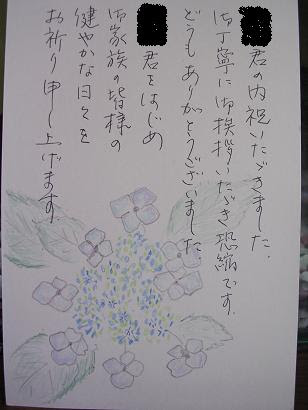 君の内祝いただきました。
御丁寧に御挨拶いただき恐縮です。
どうもありがとうございました。
君をはじめ
御家族の皆様の
健やかな日々を
お祈り申し上げます。